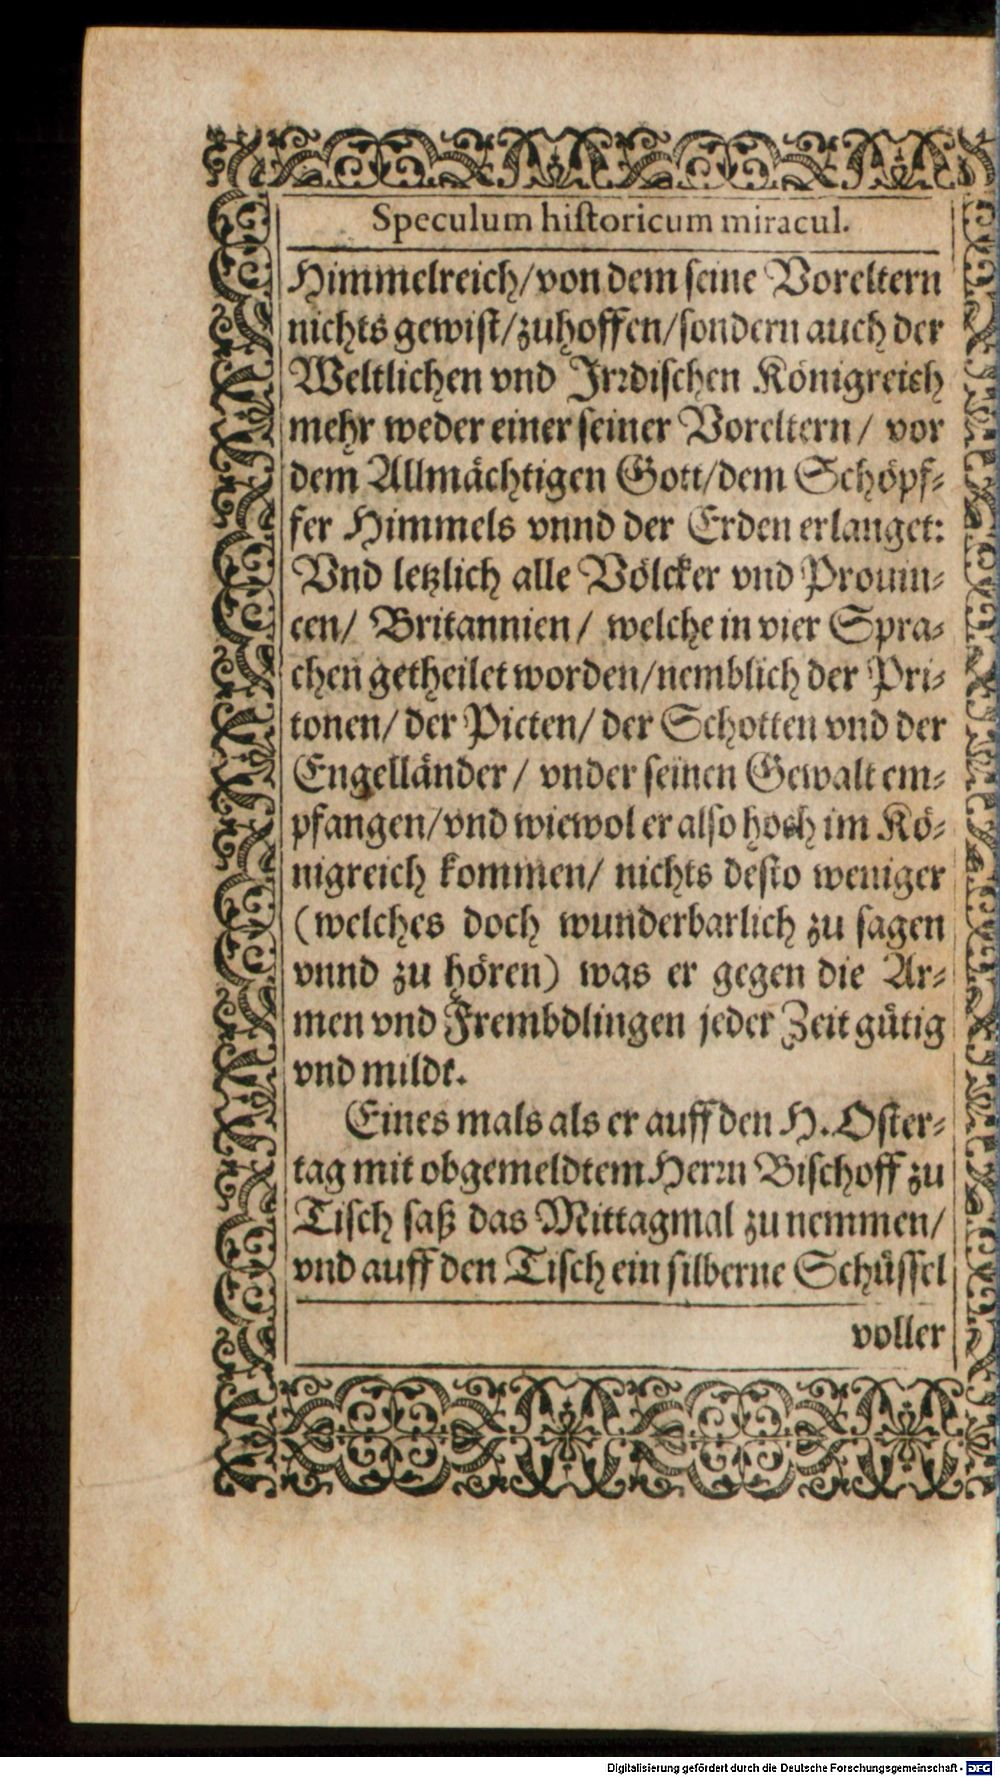 Speculum historicum miracul.
Himmelreich/von dem seine Voreltern
nichts gewist/zuhoffen/sondern auch der
Weltlichen vnd Jrꝛdischen Königreich
mehr weder einer seiner Voreltern/ vor
dem Allmächtigen Gott/dem Schöpf⸗
fer Himmels vnnd der Erden erlanget:
Vnd letzlich alle Völcker vnd Prouin⸗
cen/ Britannien/ welche in vier Spra⸗
chen getheilet worden/nemblich der Pri⸗
tonen/ der Picten/ der Schotten vnd der
Engelländer/ vnder seinen Gewalt em⸗
pfangen/vnd wiewol er also hoch im Kö⸗
nigreich kommen/ nichts desto weniger
(welches doch wunderbarlich zu sagen
vnnd zu hören) was er gegen die Ar⸗
men vnd Frembdlingen jeder Zeit gütig
vnd mildt.
Eines mals als er auff den H. Oster⸗
tag mit obgemeldtem Herꝛn Bischoff zu
Tisch saß das Mittagmal zu nemmen/
vnd auff den Tisch ein silberne Schüssel
voller
Digitalisierung gefördert durch die Deutsche Forschungsgemeinschaft - DFG